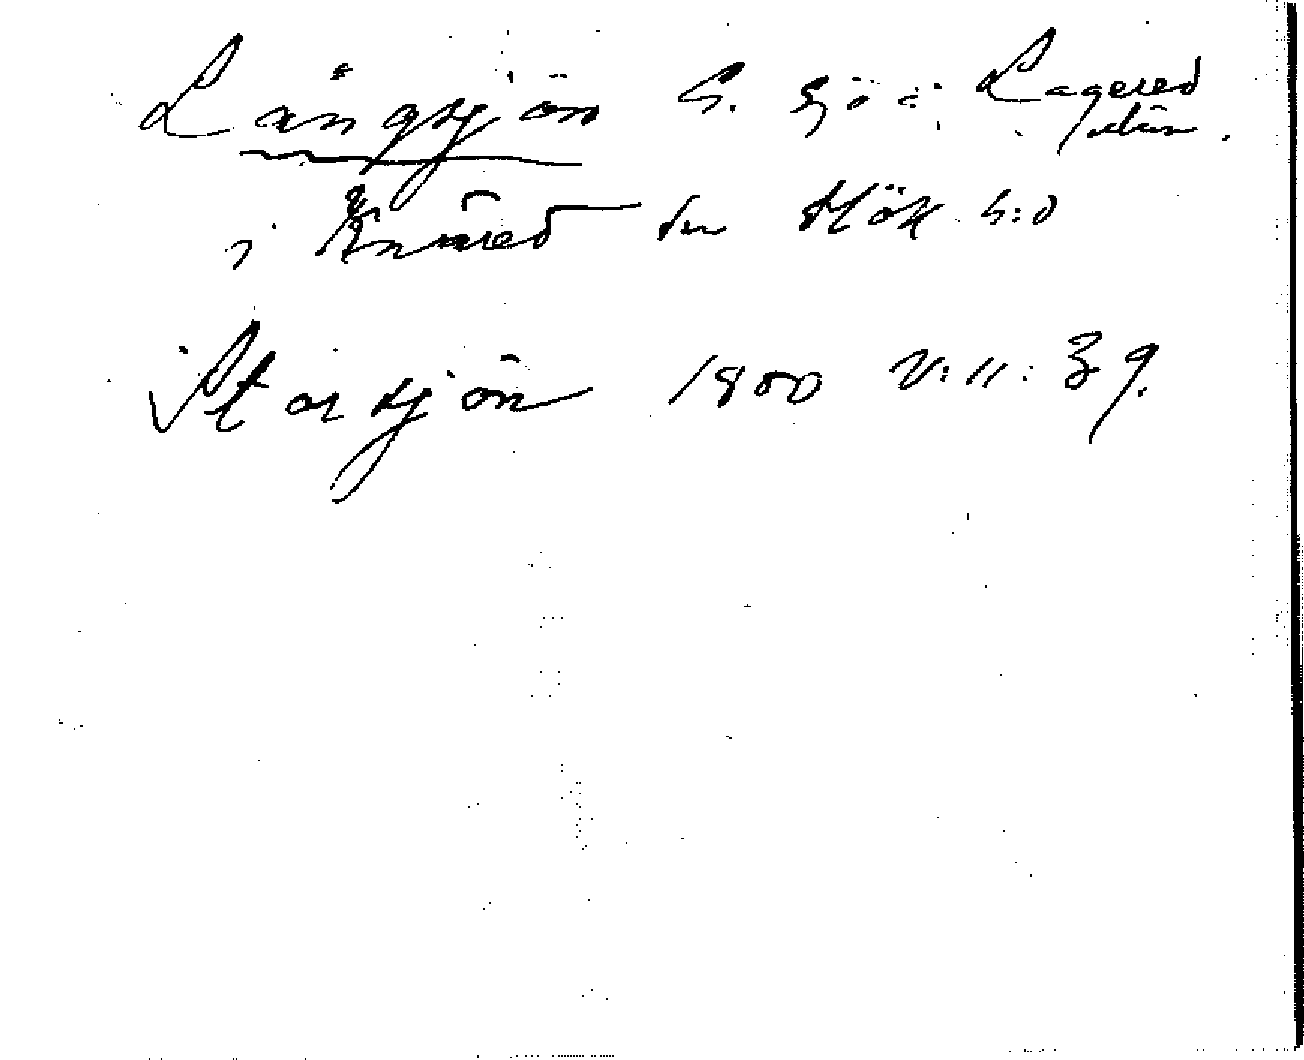 Långsjön S. sjö i Lagered
utm.
i Knäred sn Hök h:d
Storsjön 1800 V:11: 39.